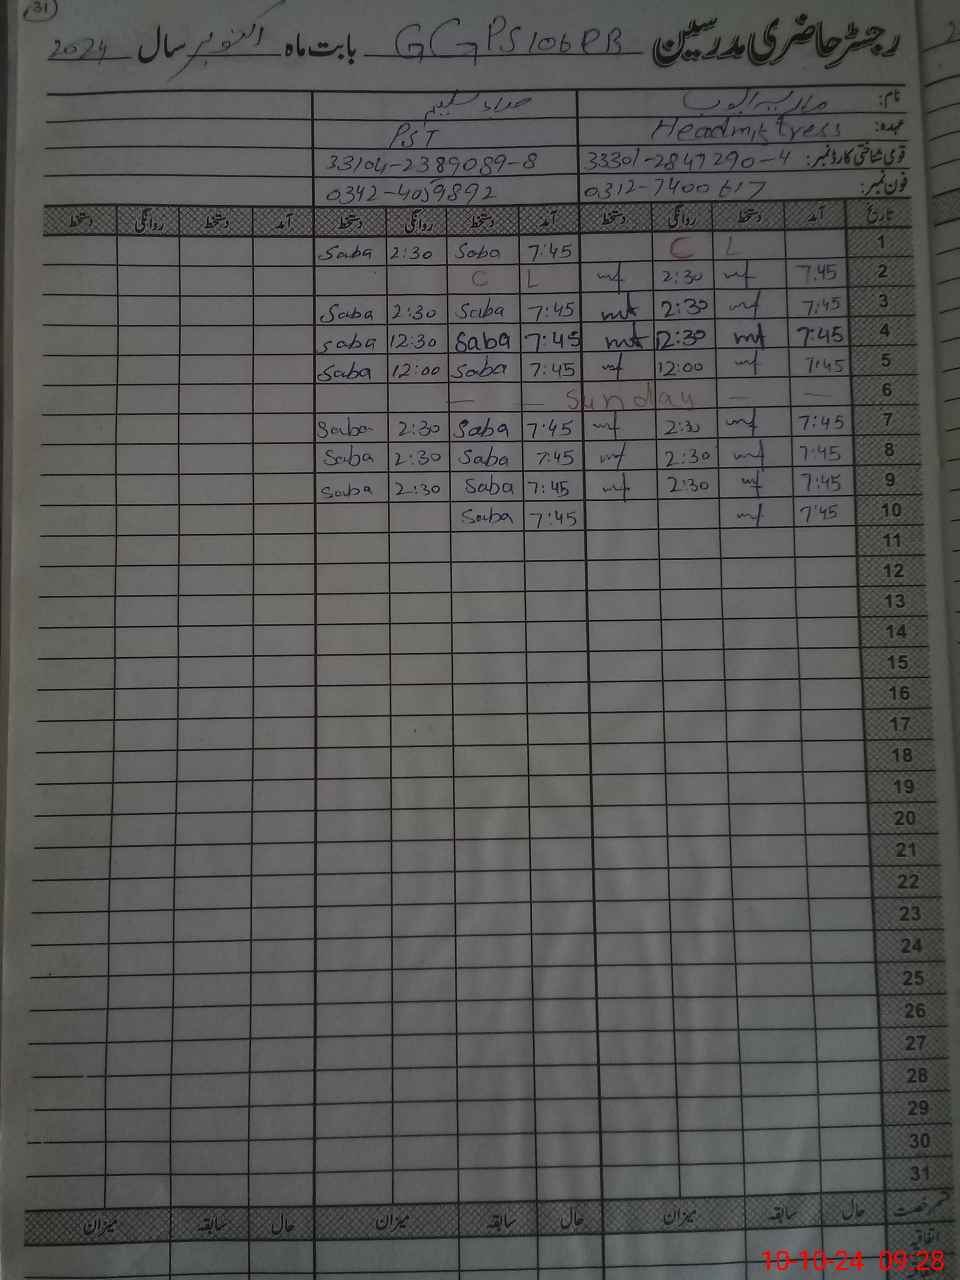 31
رجسٹر حاضری مدرسین GGPS 106 RB بابت ماہ اکتوبر سال 2024
نام:
عہدہ: Headmistress PST
قومی شناختی کارڈ نمبر: 33301-2847290-4 33104-2389089-8
فون نمبر: 0312-7400617 0342-4059892
تاریخ آمد دستخط روانگی دستخط آمد دستخط روانگی دستخط آمد دستخط روانگی دستخط
1 C L 7:45 Saba 2:30 Saba
2 7:45 mf 2:30 mf C L
3 7:45 mf 2:30 mf 7:45 Saba 2:30 Saba
4 7:45 mf 12:30 mf 7:45 Saba 12:30 Saba
5 7:45 mf 12:00 mf 7:45 Saba 12:00 Saba
6 — — Sunday — —
7 7:45 mf 2:30 mf 7:45 Saba 2:30 Saba
8 7:45 mf 2:30 mf 7:45 Saba 2:30 Saba
9 7:45 mf 2:30 mf 7:45 Saba 2:30 Saba
10 7:45 mf 7:45 Saba
11
12
13
14
15
16
17
18
19
20
21
22
23
24
25
26
27
28
29
30
31
قسم رخصت حال سابقہ میزان حال سابقہ میزان حال سابقہ میزان
اتفاقیہ
10-10-24 09:28